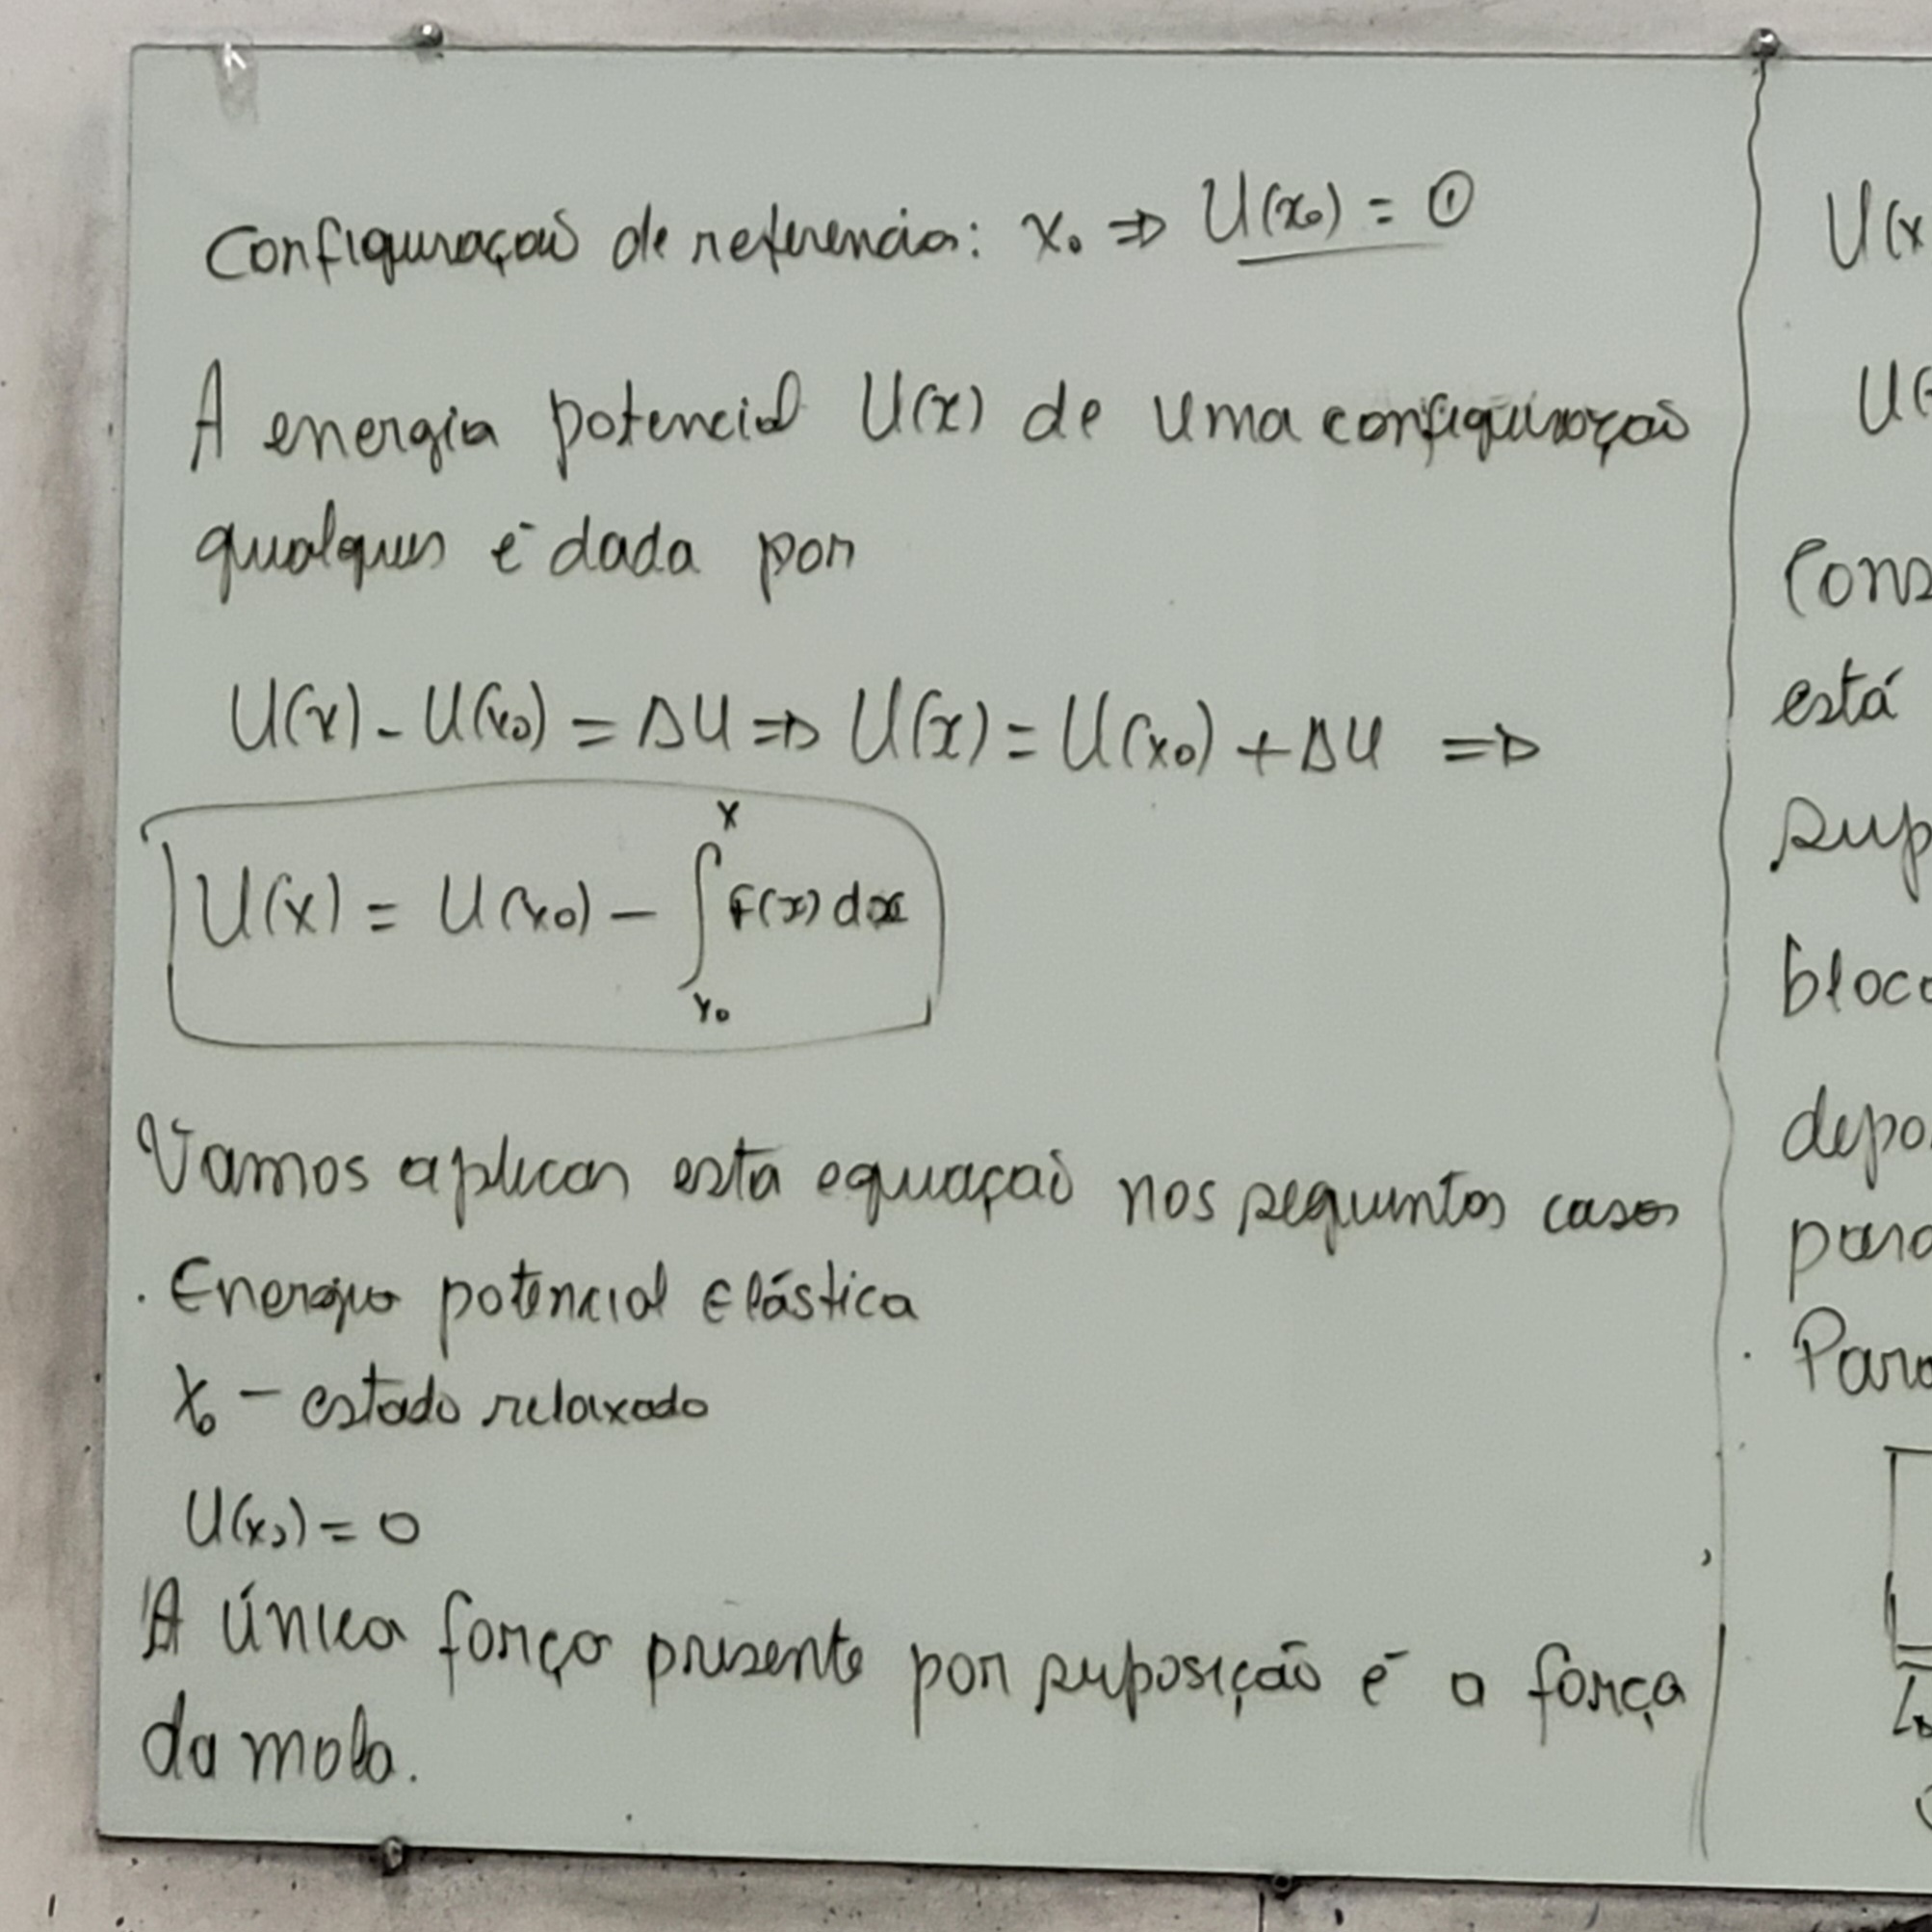 Configuração de referência: x₀ ⇒ U(x₀) = 0
A energia potencial U(x) de uma configuração
qualquer é dada por
U(x) - U(x₀) = ΔU ⇒ U(x) = U(x₀) + ΔU ⇒
U(x) = U(x₀) - ∫_{x₀}^{x} F(x) dx
Vamos aplicar esta equação nos seguintes casos
. Energia potencial elástica
x₀ - estado relaxado
U(x₀) = 0
A única força presente por suposição é a força
da mola.
U(x
U(
Cons
está
sup
bloco
depo
para
. Para